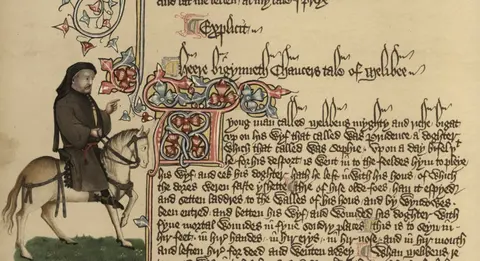 And lat me tellen al my tale I preye
Explicit
Heere bigynneth Chaucers tale of Melibee
A yong man called Melibeus myghty and riche bigat
up on his wyf that called was Prudence a doghter
which that called was Sophie. Upon a day bifel
he for his desport is went in to the feeldes hym to pleye
his wyf and eek his doghter hath he left in with his hous of which
the dores weren faste yshette thre of hise olde foos han it espyed
and setten laddres to the walles of his hous and by wyndowes
been entred and betten his wyf and wounded his doghter with
fyve mortal woundes in fyve sondry places this is to seyn in
hir feet in hir handes in hir erys in hir nose and in hir mouth
and leften hir for deed and wenten awey Whan Melibeus re